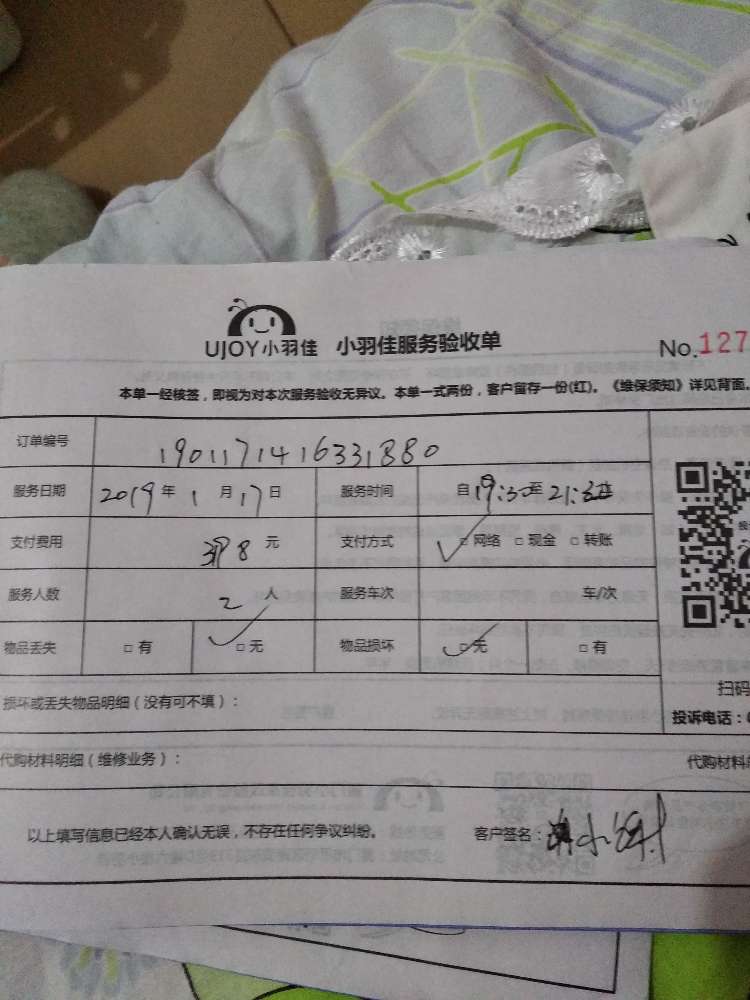 UJOY小羽佳 小羽佳服务验收单
No.127
本单一经核签，即视为对本次服务验收无异议。本单一式两份，客户留存一份(红)。《维保须知》详见背面。
订单编号 1901171416331880
服务日期 2019年 1月17日 服务时间 自19:30至21:
支付费用 398元 支付方式 □网络 □现金 □转账
服务人数 2人 服务车次 车/次
物品丢失 □有 □无 物品损坏 □无 □有
扫码
损坏或丢失物品明细（没有可不填）：
投诉电话：
代购材料明细（维修业务）： 代购材料
以上填写信息已经本人确认无误，不存在任何争议纠纷。 客户签名：